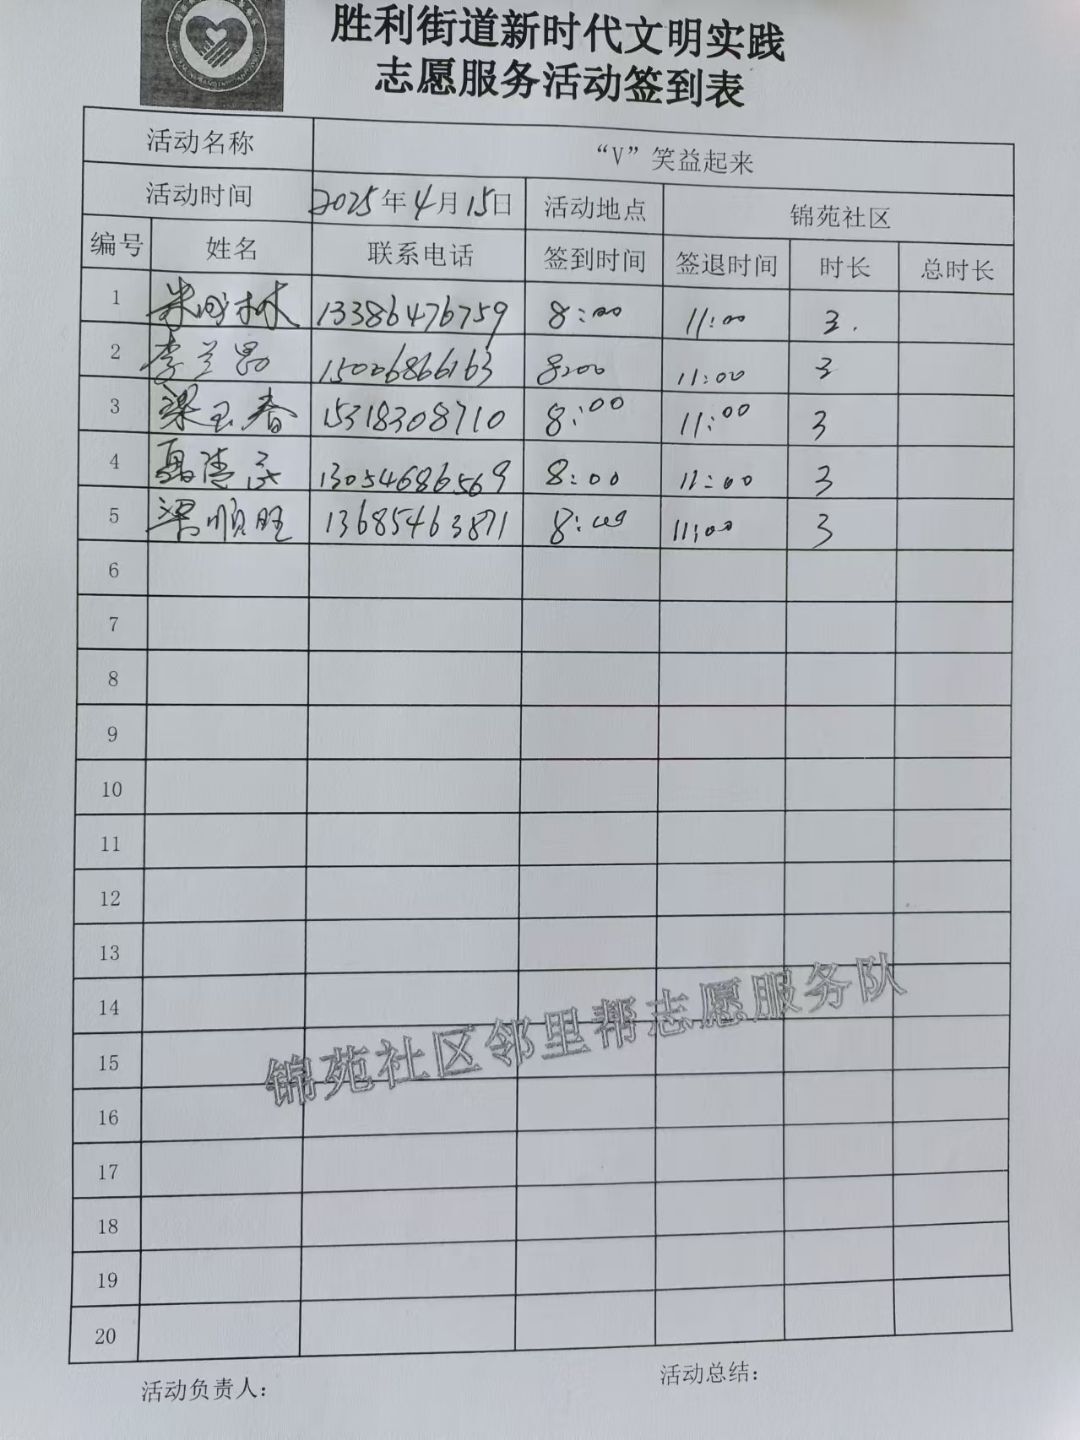 胜利街道新时代文明实践
志愿服务活动签到表
活动名称 “V”笑益起来
活动时间 2025年4月15日 活动地点 锦苑社区
编号 姓名 联系电话 签到时间 签退时间 时长 总时长
1 朱成林 13386476759 8:00 11:00 3.
2 李兰勇 15006866163 8:00 11:00 3
3 梁玉春 15318308710 8:00 11:00 3
4 聂德民 13054686569 8:00 11:00 3
5 梁顺旺 13685463871 8:00 11:00 3
6
7
8
9
10
11
12
13
14
15
16
17
18
19
20
锦苑社区邻里帮志愿服务队
活动负责人: 活动总结: